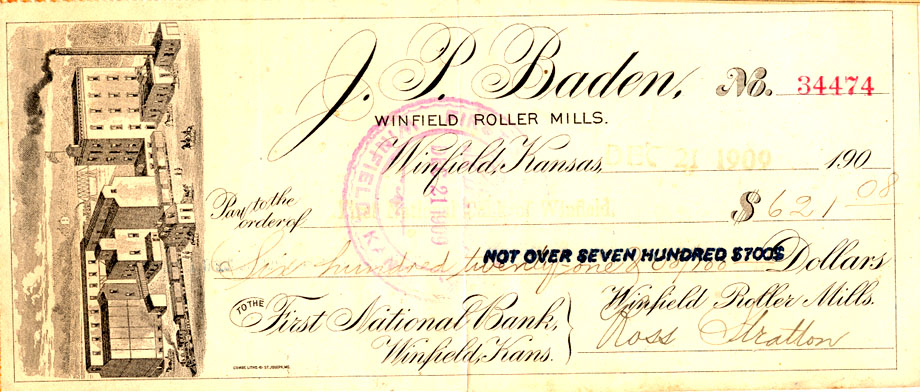 J. P. Baden, No. 34474
WINFIELD ROLLER MILLS.
Winfield, Kansas, DEC 21 1909 190
Pay to the order of $ 621 08
Six hundred twenty-one & 08/100 Dollars
NOT OVER SEVEN HUNDRED $700$
TO THE First National Bank,
Winfield, Kans.
Winfield Roller Mills.
Ross Stratton
WINFIELD, KAN
21 1909